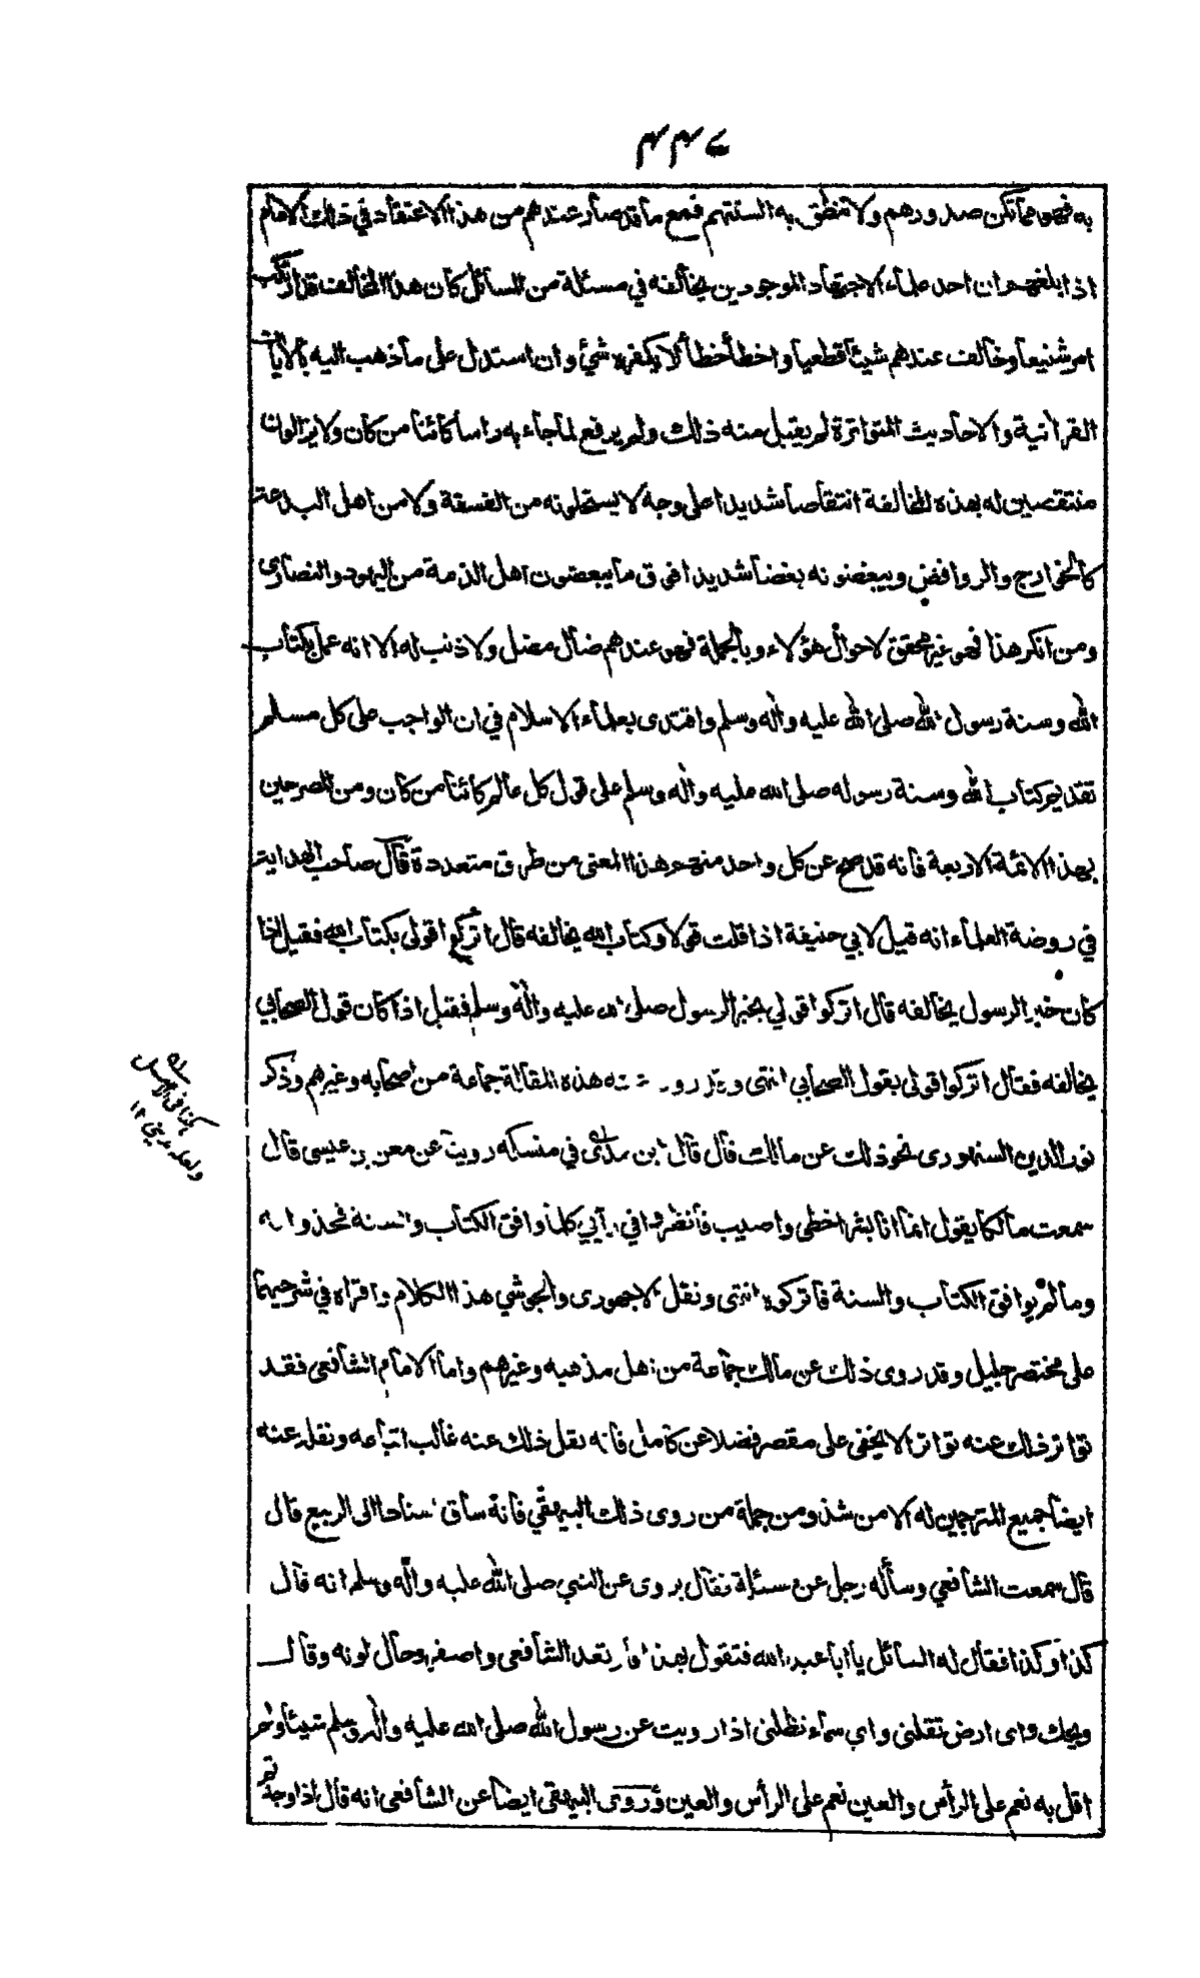 ٤٣٧
به فهو مما تكن صدورهم ولا تنطق به السنتهم فمع ما قد صار عندهم من هذا الاعتقاد في ذلك الامام
اذا بلغهم ان احد علماء الاجتهاد الموجودين يخالفه في مسئلة من المسائل كان هذا المخالف قد ارتكب
امرا شنيعا وخالف عندهم شيئا قطعيا واخطأ خطأ لا يكفره شئ وان استدل على ما ذهب اليه بالايات
القرانية والاحاديث المتواترة لم يقبل منه ذلك ولم يرفع لما جاء به راسا كائنا من كان ولا يزالون
منتقصين له بهذه المخالفة انتقاصا شديدا على وجه لا يستحلونه من الفسقة ولا من اهل البدعة
كالخوارج والروافض ويبغضونه بغضا شديدا فوق ما يبغضون اهل الذمة من اليهود والنصارى
ومن انكر هذا فهو غير محقق لاحوال هؤلاء وبالجملة فهو عندهم ضال مضل ولا ذنب له الا انه عمل بكتاب
الله وسنة رسول الله صلى الله عليه واله وسلم واقتدى بعلماء الاسلام في ان الواجب على كل مسلم
تقديم كتاب الله وسنة رسوله صلى الله عليه واله وسلم على قول كل عالم كائنا من كان ومن المصرحين
بهذا الائمة الاربعة فانه قد صح عن كل واحد منهم هذا المعنى من طرق متعددة قال صاحب الهداية
في روضة العلماء انه قيل لابي حنيفة اذا قلت قولا وكتاب الله يخالفه قال اتركوا قولي بكتاب الله فقيل اذا
كان خبر الرسول يخالفه قال اتركوا قولي بخبر الرسول صلى الله عليه واله وسلم فقيل اذا كان قول الصحابي
يخالفه فقال اتركوا قولي بقول الصحابي انتهى وقد روى عنه هذه المقالة جماعة من اصحابه وغيرهم وذكر
نور الدين السنهوري نحو ذلك عن مالك قال قال ابن مسدي في منسكه رويت عن معن بن عيسى قال
سمعت مالكا يقول انما انا بشر اخطئ واصيب فانظروا في رأيي كلما وافق الكتاب والسنة فخذوا به
وما لم يوافق الكتاب والسنة فاتركوه انتهى ونقل الاجهوري والجوشي هذا الكلام واقراه في شرحيهما
على مختصر خليل وقد روى ذلك عن مالك جماعة من اهل مذهبه وغيرهم واما الامام الشافعي فقد
تواتر ذلك عنه تواترا لا يخفى على مقصر فضلا عن كامل فانه نقل ذلك عنه غالب اتباعه ونقله عنه
ايضا جميع المترجمين له الا من شذ ومن جملة من روى ذلك البيهقي فانه ساق اسنادا الى الربيع قال
قال سمعت الشافعي وسأله رجل عن مسئلة فقال يروى عن النبي صلى الله عليه واله وسلم انه قال
كذا وكذا فقال له السائل يا ابا عبد الله فتقول بهذا فارتعد الشافعي واصفر وحال لونه وقال
ويحك واى ارض تقلني واي سماء تظلني اذا رويت عن رسول الله صلى الله عليه واله وسلم شيئا ولم
اقل به نعم على الرأس والعين نعم على الرأس والعين وروى البيهقي ايضا عن الشافعي انه قال اذا وجدتم
كذا في الاصل